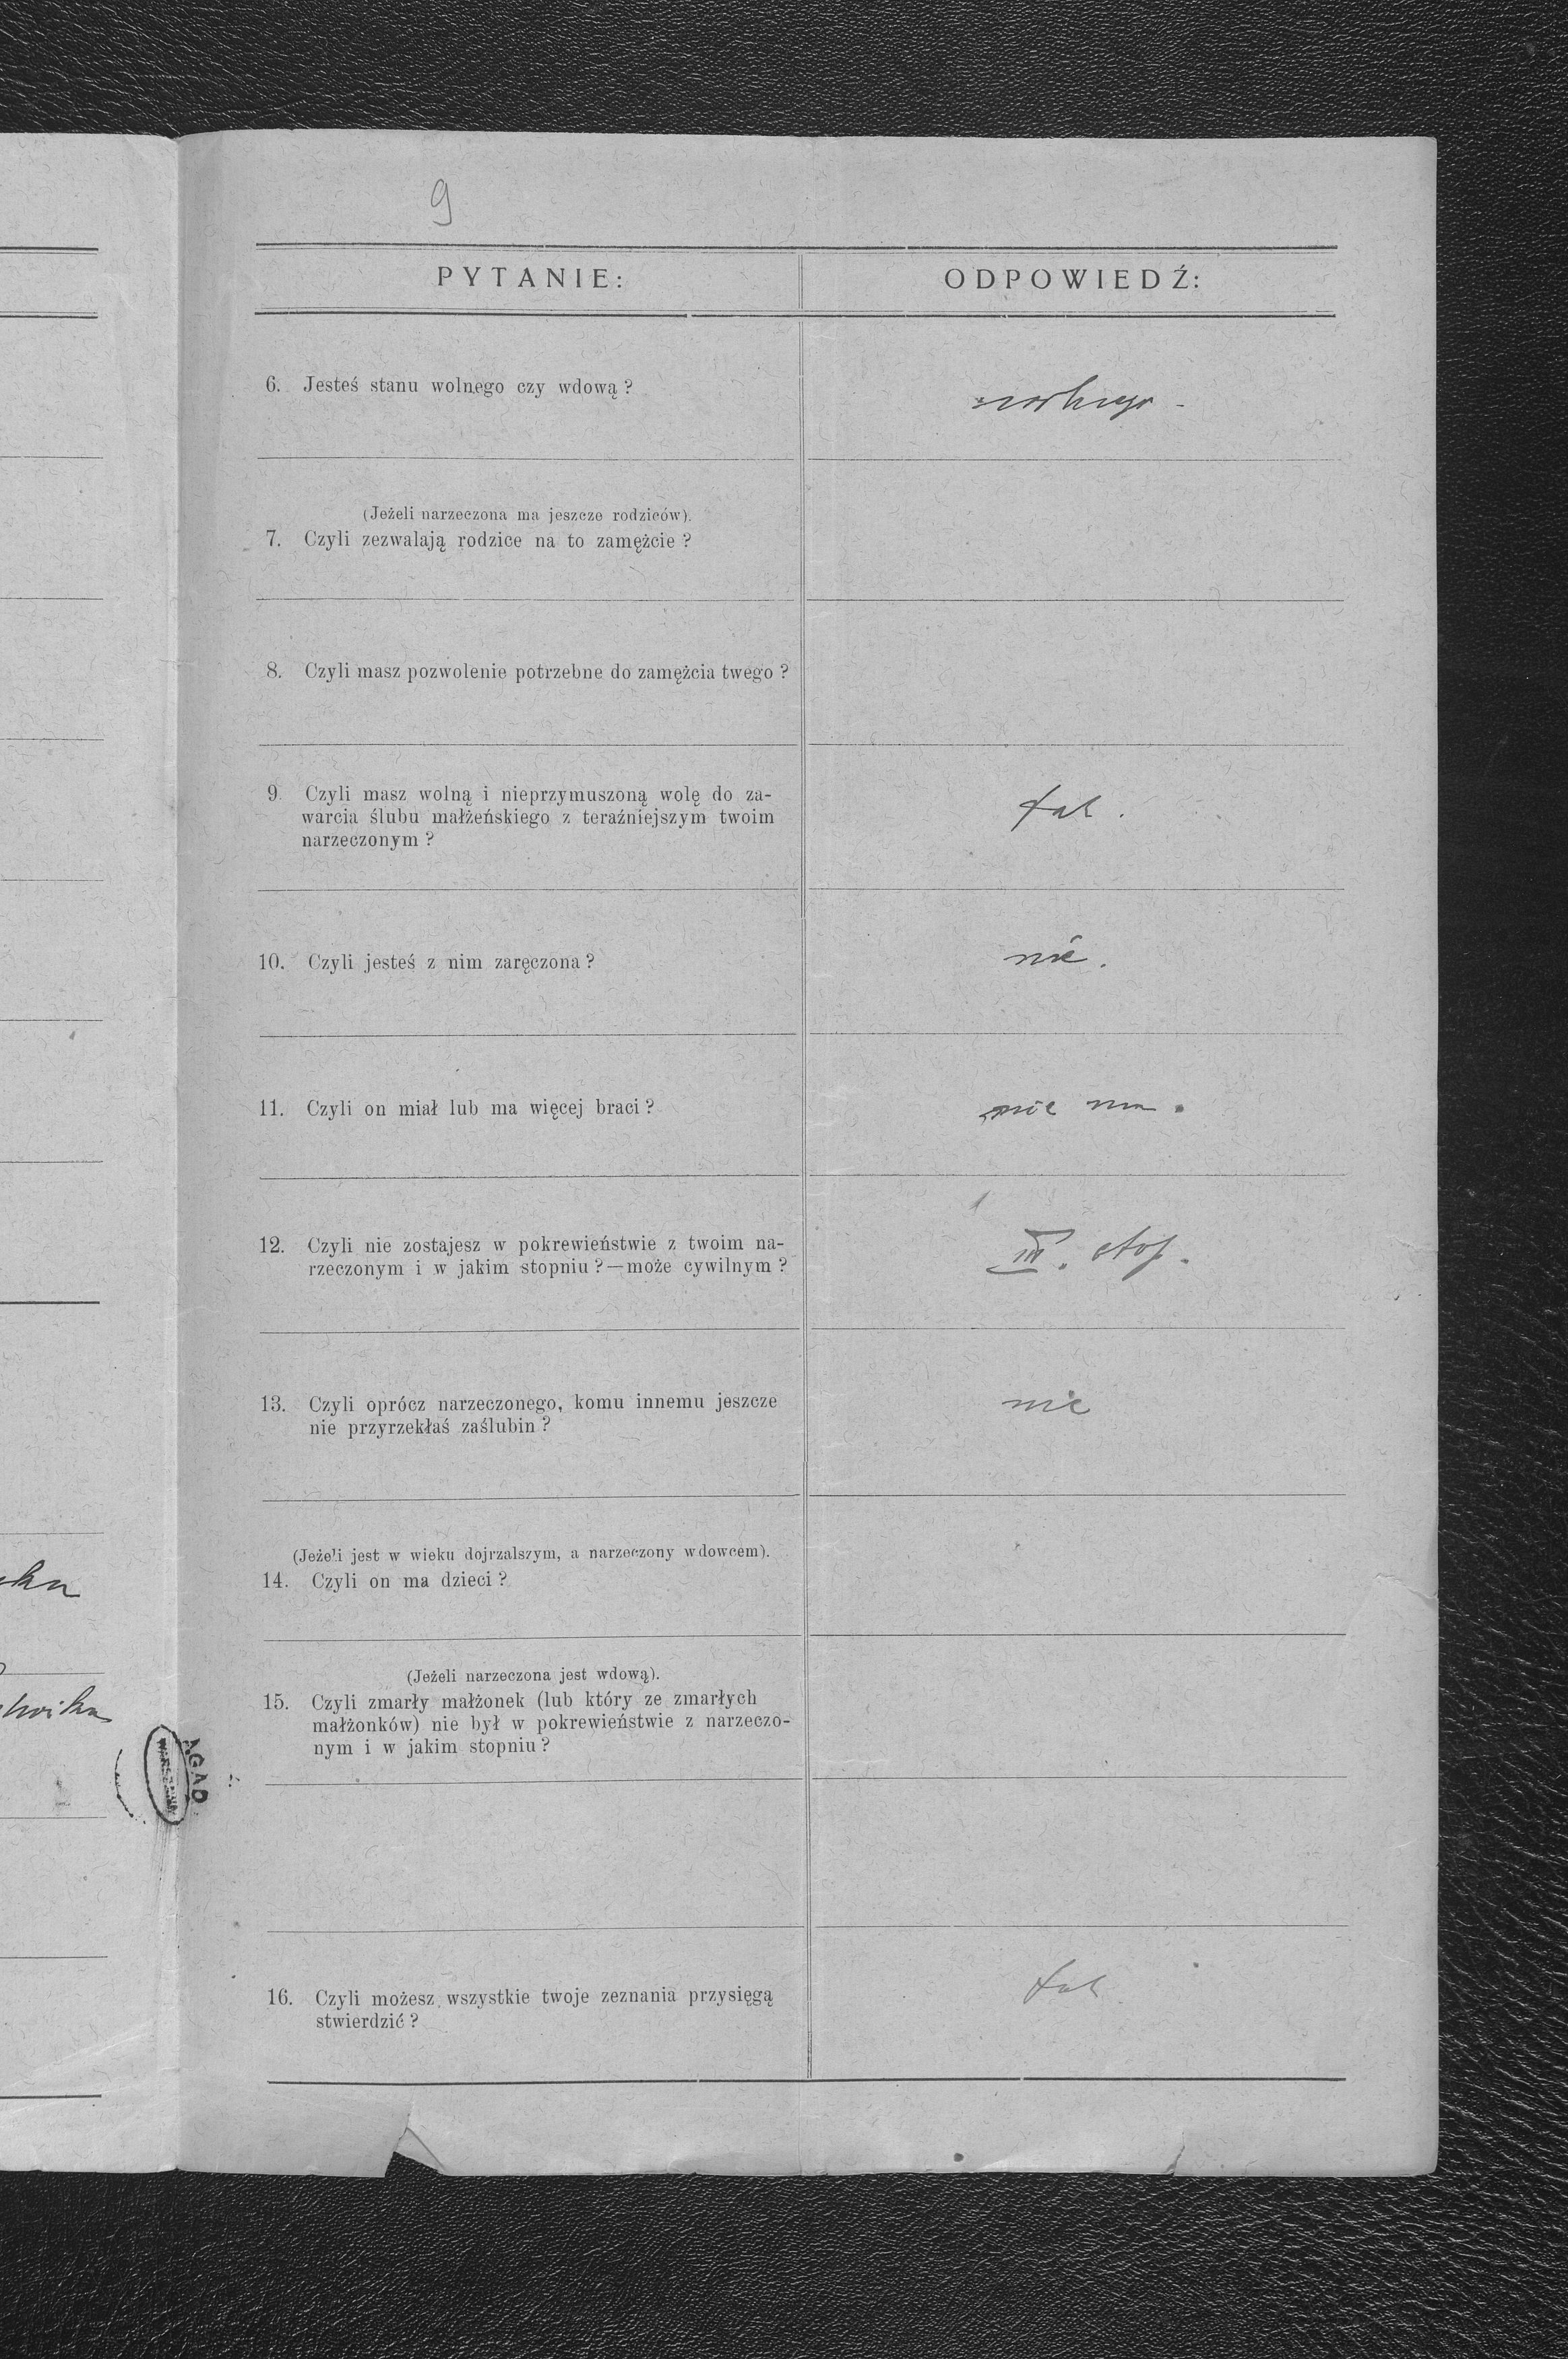 9
PYTANIE:
ODPOWIEDŹ:
6. Jesteś stanu wolnego czy wdową?
wolnego -
(Jeżeli narzeczona ma jeszcze rodziców).
7. Czyli zezwalają rodzice na to zamężcie?
8. Czyli masz pozwolenie potrzebne do zamężcia twego?
9. Czyli masz wolną i nieprzymuszoną wolę do za-
warcia ślubu małżeńskiego z teraźniejszym twoim
narzeczonym?
tak.
10. Czyli jesteś z nim zaręczona?
nie.
11. Czyli on miał lub ma więcej braci?
nie ma.
12. Czyli nie zostajesz w pokrewieństwie z twoim na-
rzeczonym i w jakim stopniu?—może cywilnym?
III. stop.
13. Czyli oprócz narzeczonego, komu innemu jeszcze
nie przyrzekłaś zaślubin?
nie
(Jeżeli jest w wieku dojrzalszym, a narzeczony wdowcem).
14. Czyli on ma dzieci?
(Jeżeli narzeczona jest wdową).
15. Czyli zmarły małżonek (lub który ze zmarłych
małżonków) nie był w pokrewieństwie z narzeczo-
nym i w jakim stopniu?
AGAD
WARSZAWA
16. Czyli możesz wszystkie twoje zeznania przysięgą
stwierdzić?
tak